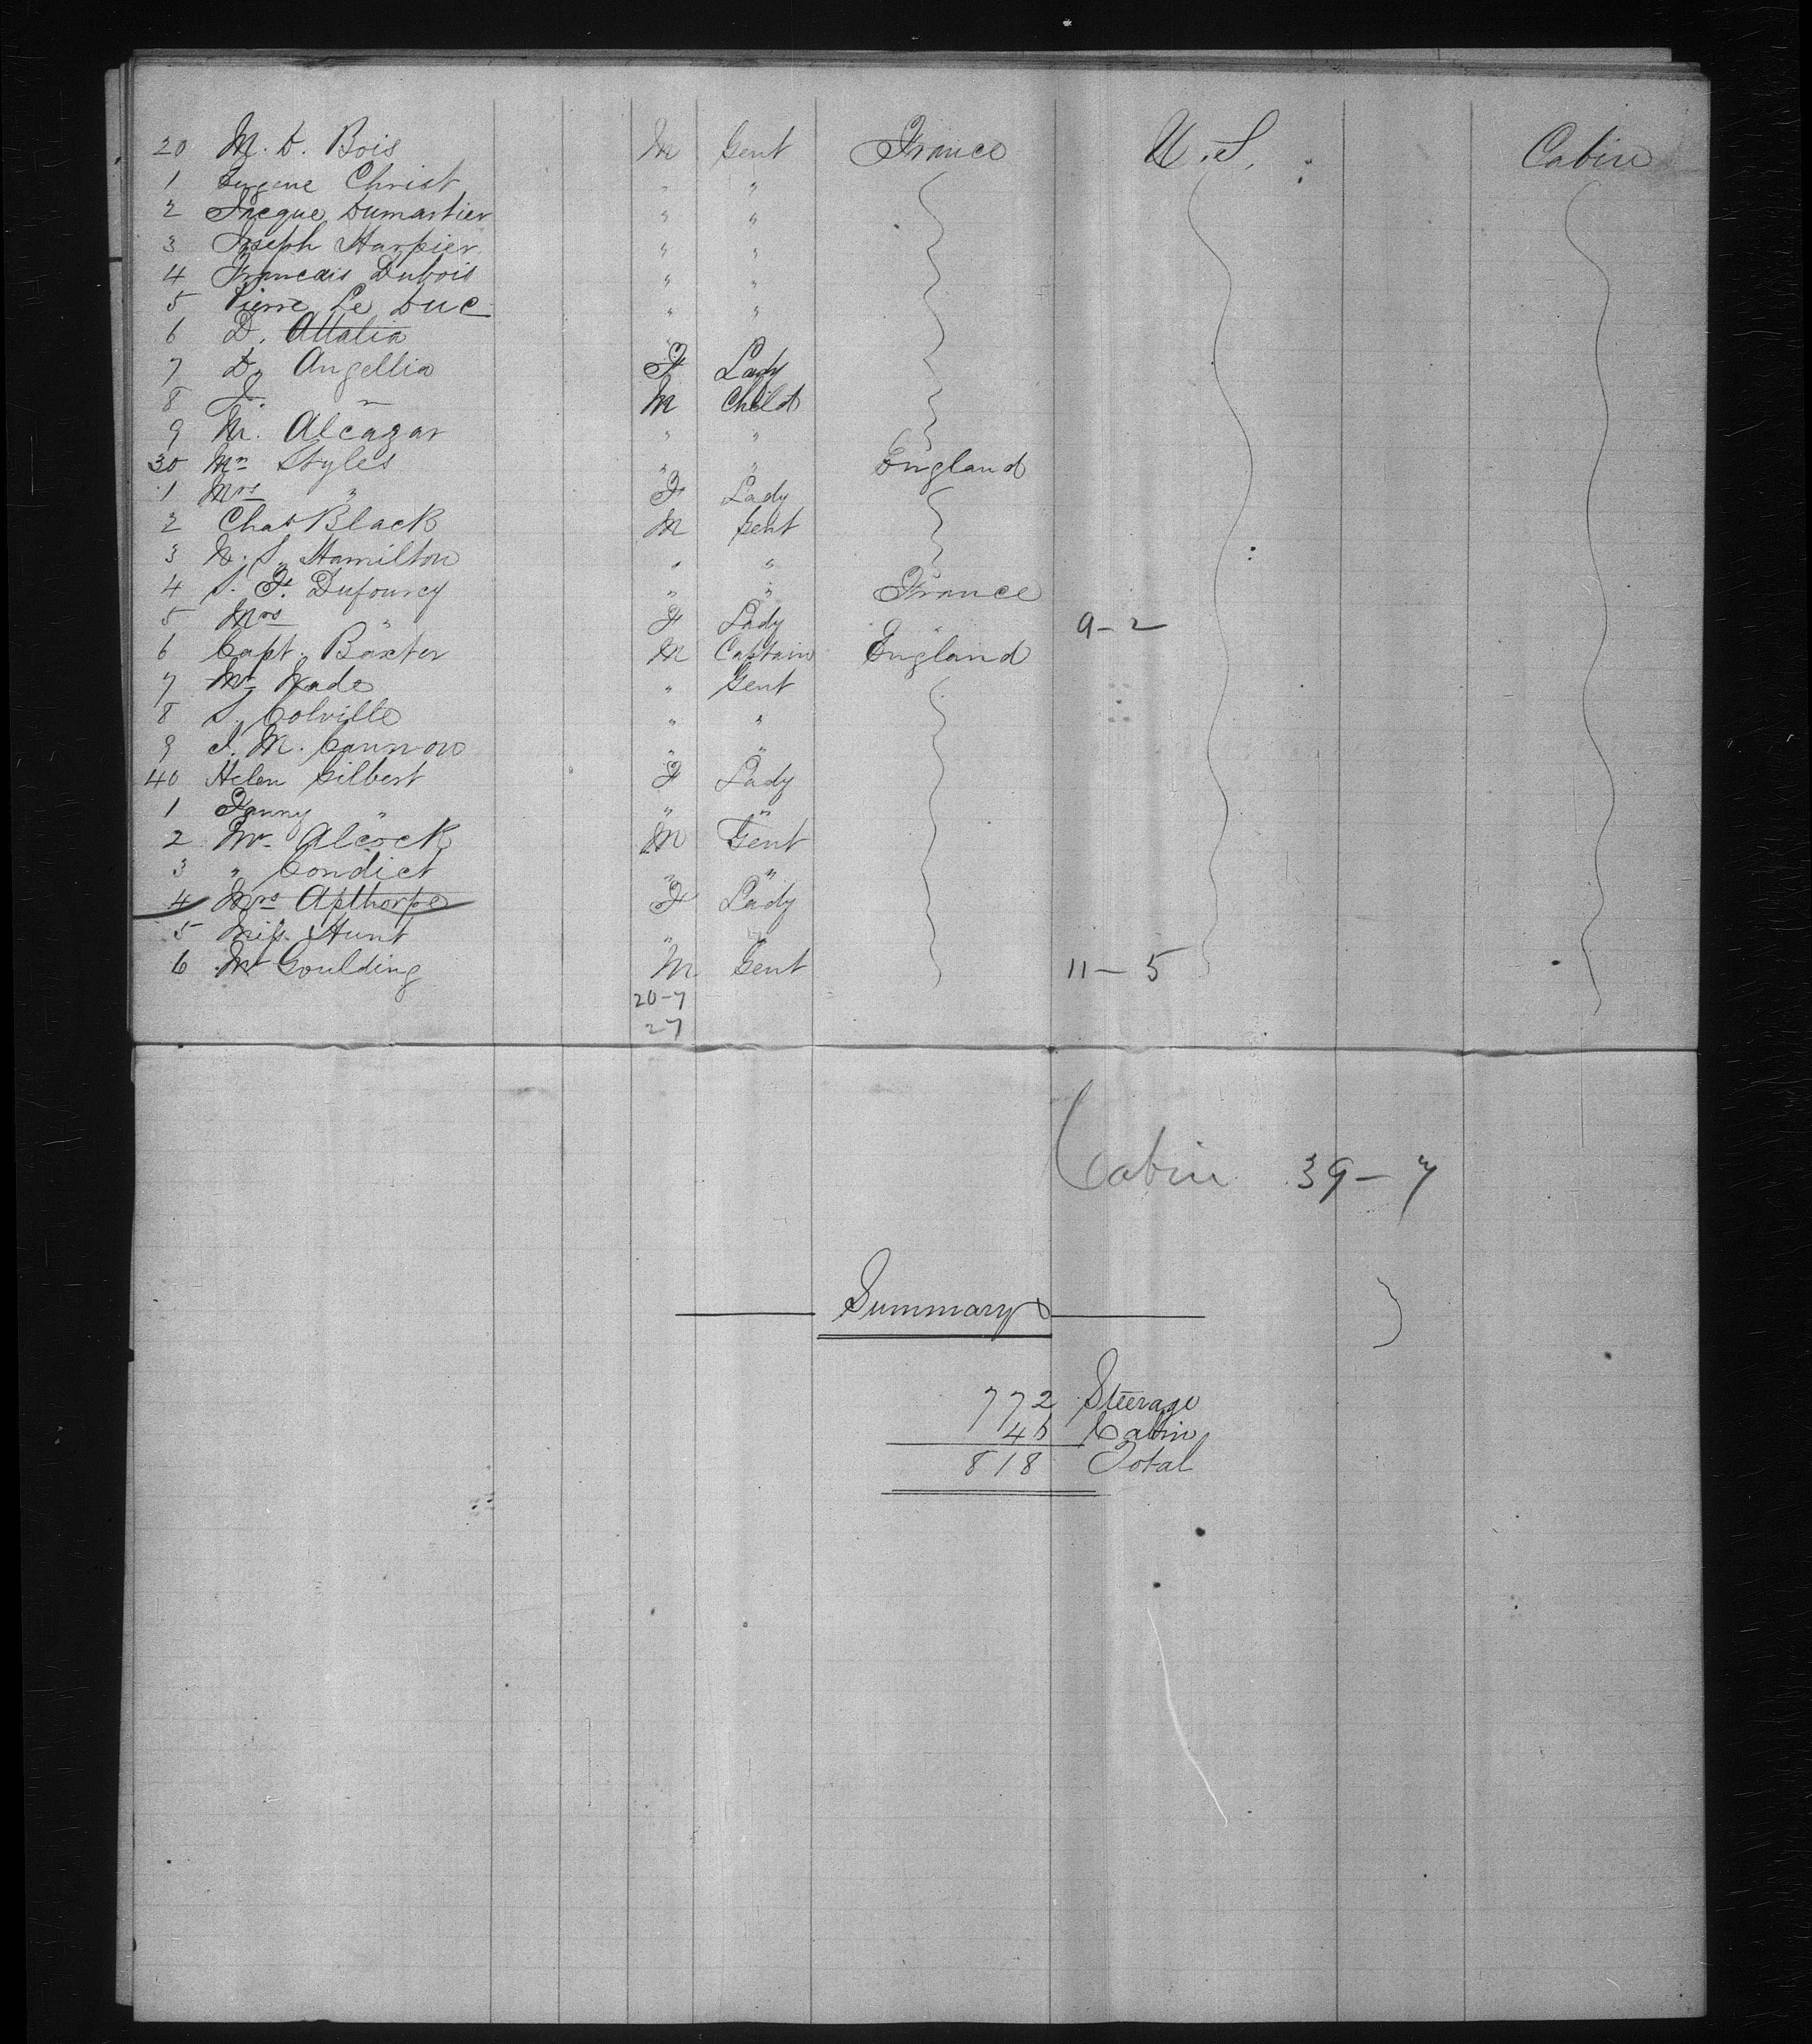 20 M. D. Bois M Gent France U.S. Cabin
1 Eugene Christ " "
2 Jacque Dumartier " "
3 Joseph Harpier " "
4 Francais Dubois " "
5 Pierre Le Duc " "
6 D. Attalia "
7 D. Angellia F Lady
8 J. " M Child
9 M. Alcazar " "
30 Mr Styles " " England
1 Mrs " F Lady
2 Chas Black M Gent
3 N. S. Hamilton " "
4 S. F. Dufourcy " " France
5 Mrs " F Lady " 9-2
6 Capt. Baxter M Captain England
7 Mr Wade " Gent
8 S. Colville " "
9 J. M. Cannon " "
40 Helen Gilbert F Lady
1 Fanny " " "
2 Mr Alcock M Gent
3 " Condict " "
4 Mrs Apthorpe F Lady
5 Miss Hunt " "
6 Mr Goulding M Gent 11-5
20-7
27
Cabin 39-7
Summary
772 Steerage
46 Cabin
818 Total